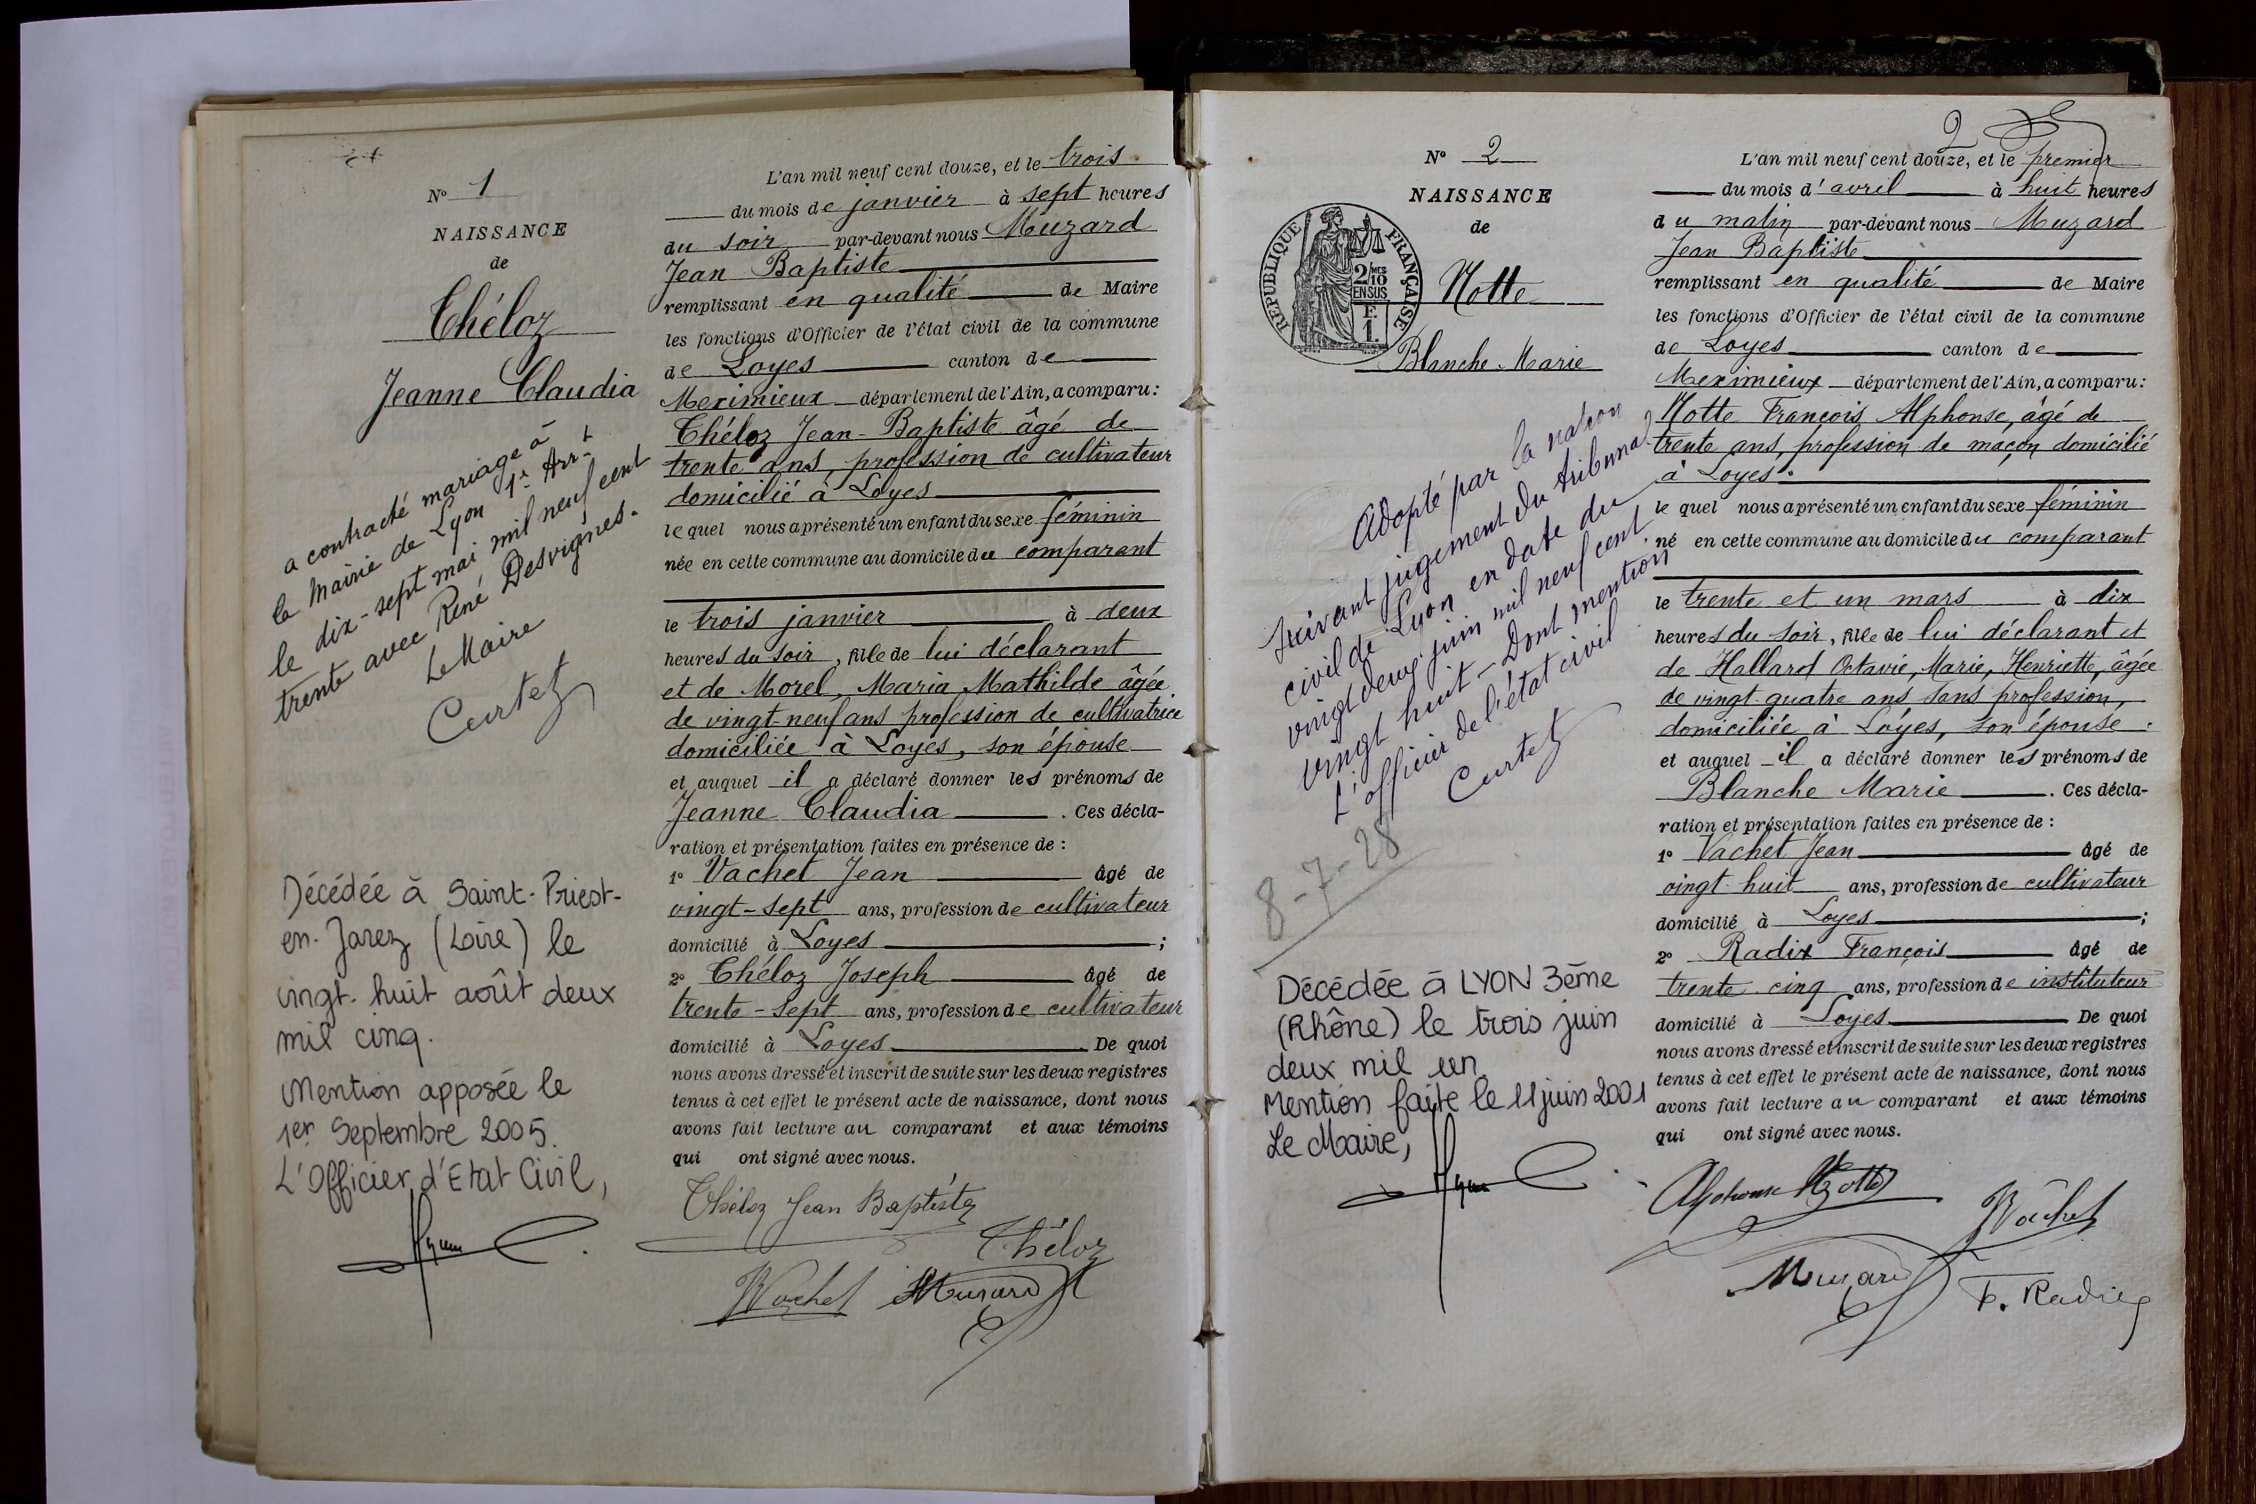 N° 1
NAISSANCE
de
Théloz
Jeanne Claudia
a contracté mariage à
la Mairie de Lyon 1r Arr-t
le dix-sept mai mil neuf cent
trente avec René Desvignes.
Le Maire
Curtet
Décédée à Saint-Priest-
en-Jarez (Loire) le
vingt-huit août deux
mil cinq.
Mention apposée le
1er Septembre 2005.
L'Officier d'Etat Civil,
L'an mil neuf cent douze, et le trois
du mois de janvier à sept heures
du soir par-devant nous Muzard
Jean Baptiste
remplissant en qualité de Maire
les fonctions d'Officier de l'état civil de la commune
de Loyes canton de
Meximieux département de l'Ain, a comparu:
Théloz Jean-Baptiste âgé de
trente ans, profession de cultivateur
domicilié à Loyes
le quel nous a présenté un enfant du sexe féminin
née en cette commune au domicile du comparant
le trois janvier à deux
heures du soir, fille de lui déclarant
et de Morel, Maria Mathilde âgée
de vingt-neuf ans profession de cultivatrice
domiciliée à Loyes, son épouse
et auquel il a déclaré donner les prénoms de
Jeanne Claudia. Ces décla-
ration et présentation faites en présence de :
1° Vachet Jean âgé de
vingt-sept ans, profession de cultivateur
domicilié à Loyes ;
2° Théloz Joseph âgé de
trente-sept ans, profession de cultivateur
domicilié à Loyes De quoi
nous avons dressé et inscrit de suite sur les deux registres
tenus à cet effet le présent acte de naissance, dont nous
avons fait lecture au comparant et aux témoins
qui ont signé avec nous.
Théloz Jean Baptiste
Théloz
Vachet Muzard
2
N° 2
NAISSANCE
de
REPUBLIQUE FRANÇAISE
2/10
EN SUS
F.
1.
Notte
Blanche Marie
Adopté par la nation
suivant jugement du tribunal
civil de Lyon en date du
vingt deux juin mil neuf cent
vingt huit - Dont mention
L'officier de l'état civil
Curtet
8-7-28
Décédée à LYON 3ème
(Rhône) le trois juin
deux mil un
Mention faite le 11 juin 2001
Le Maire,
L'an mil neuf cent douze, et le premier
du mois d'avril à huit heures
du matin par-devant nous Muzard
Jean Baptiste
remplissant en qualité de Maire
les fonctions d'Officier de l'état civil de la commune
de Loyes canton de
Meximieux département de l'Ain, a comparu:
Notte François Alphonse, âgé de
trente ans, profession de maçon domicilié
à Loyes.
le quel nous a présenté un enfant du sexe féminin
né en cette commune au domicile du comparant
le trente et un mars à dix
heures du soir, fille de lui déclarant et
de Hallard Octavie, Marie, Henriette, âgée
de vingt quatre ans sans profession,
domiciliée à Loyes, son épouse :
et auquel il a déclaré donner les prénoms de
Blanche Marie. Ces décla-
ration et présentation faites en présence de :
1° Vachet Jean âgé de
vingt huit ans, profession de cultivateur
domicilié à Loyes ;
2° Radix François âgé de
trente cinq ans, profession de instituteur
domicilié à Loyes De quoi
nous avons dressé et inscrit de suite sur les deux registres
tenus à cet effet le présent acte de naissance, dont nous
avons fait lecture au comparant et aux témoins
qui ont signé avec nous.
Alphonse Notte
Vachet
Muzard
F. Radix